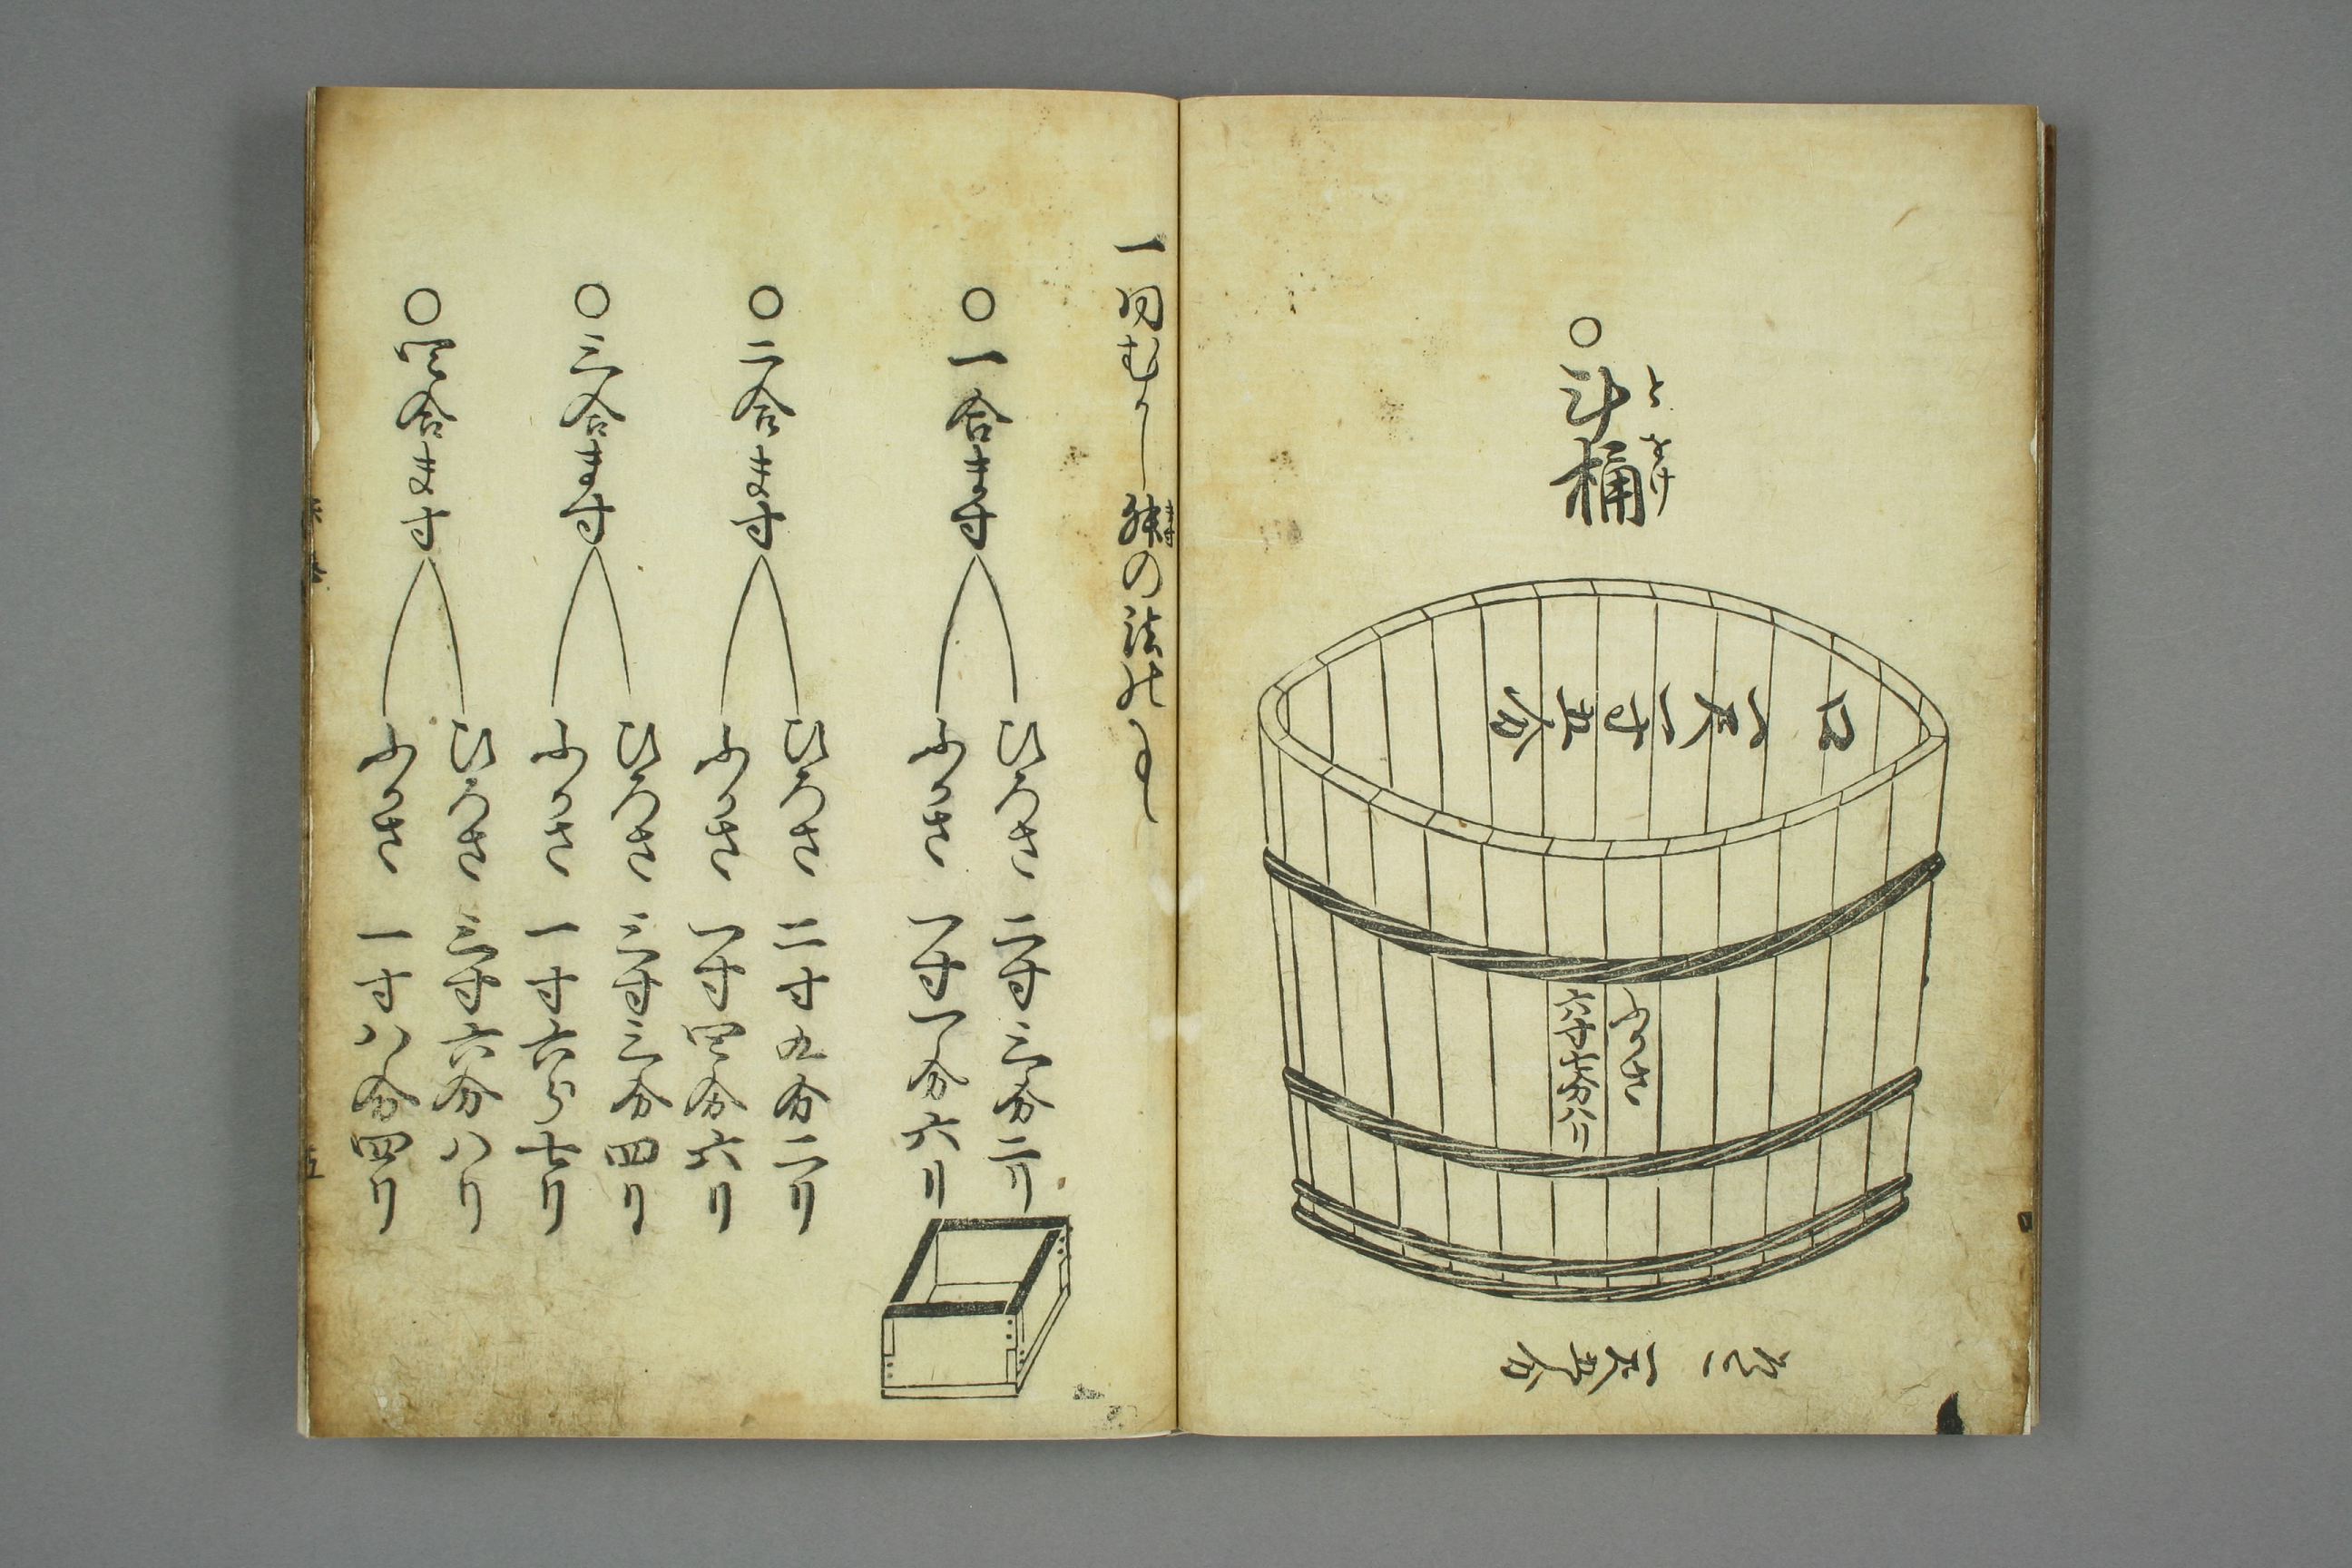 ○斗桶
とをけ
口 一尺一寸五分
ふかさ
六寸七分八リ
そこ 一尺五分
一 同むかし舛の法の事
ます
○一合ます
ひろさ 二寸三分二リ
ふかさ 一寸一分六リ
○二合ます
ひろさ 二寸九分二リ
ふかさ 一寸四分六リ
○三合ます
ひろさ 三寸三分四リ
ふかさ 一寸六分七リ
○四合ます
ひろさ 三寸六分八リ
ふかさ 一寸八分四リ